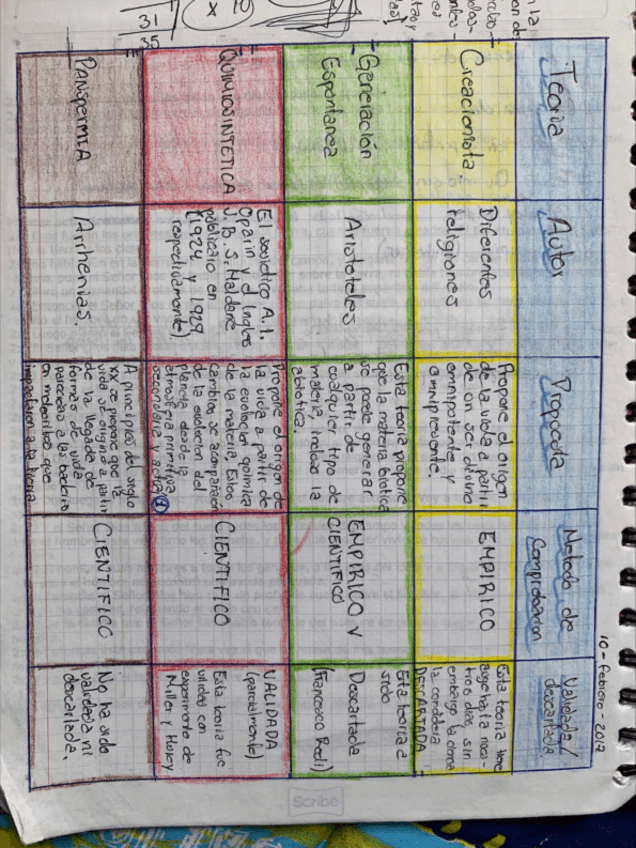 10 - Febrero - 2017
Teoria
Autor
Propuesta
Metodo de
Comprobacion
Validada /
descartada
Creacionista.
Diferentes
religiones
Propone el origen
de la vida a partir
de un ser divino
omnipotente y
omnipresente.
EMPIRICO
Esta teoria tiene
auge hasta nues-
tros dias, sin
embargo la
la considera
DESCARTADA
Generación
Espontanea
Aristoteles
Esta teoria propone
que la materia biotica
se puede generar
a partir de
cualquier tipo de
materia, incluso la
abiotica.
EMPIRICO y
CIENTIFICO
Esta teoria a
sido
Descartada
(Francesco Redi)
QUIMIOSINTETICA
El sovietico A. I.
Oparin y el Ingles
J. B. S. Haldane
publicaro en
(1924 y 1929
respectivamente)
Propone el origen de
la vida a partir de
la evolucion quimica
de la materia. Estos
cambios se acompañaron
de la evolucion del
planeta desde la
atmosfera primitiva
secundaria y actual
CIENTIFICO
VALIDADA
(parcialmente)
Esta teoria fue
valida con
experimento de
Miller y
PANSPERMIA
Arrhenias.
A principios del siglo
XX se propone que la
vida se origino a partir
de la llegada de
formas de vida
parecidas a las bacterias
en meteoritos que
impactaron a la tierra
CIENTIFICO
No ha sido
validada ni
descartada.
31
35
x
Scribe